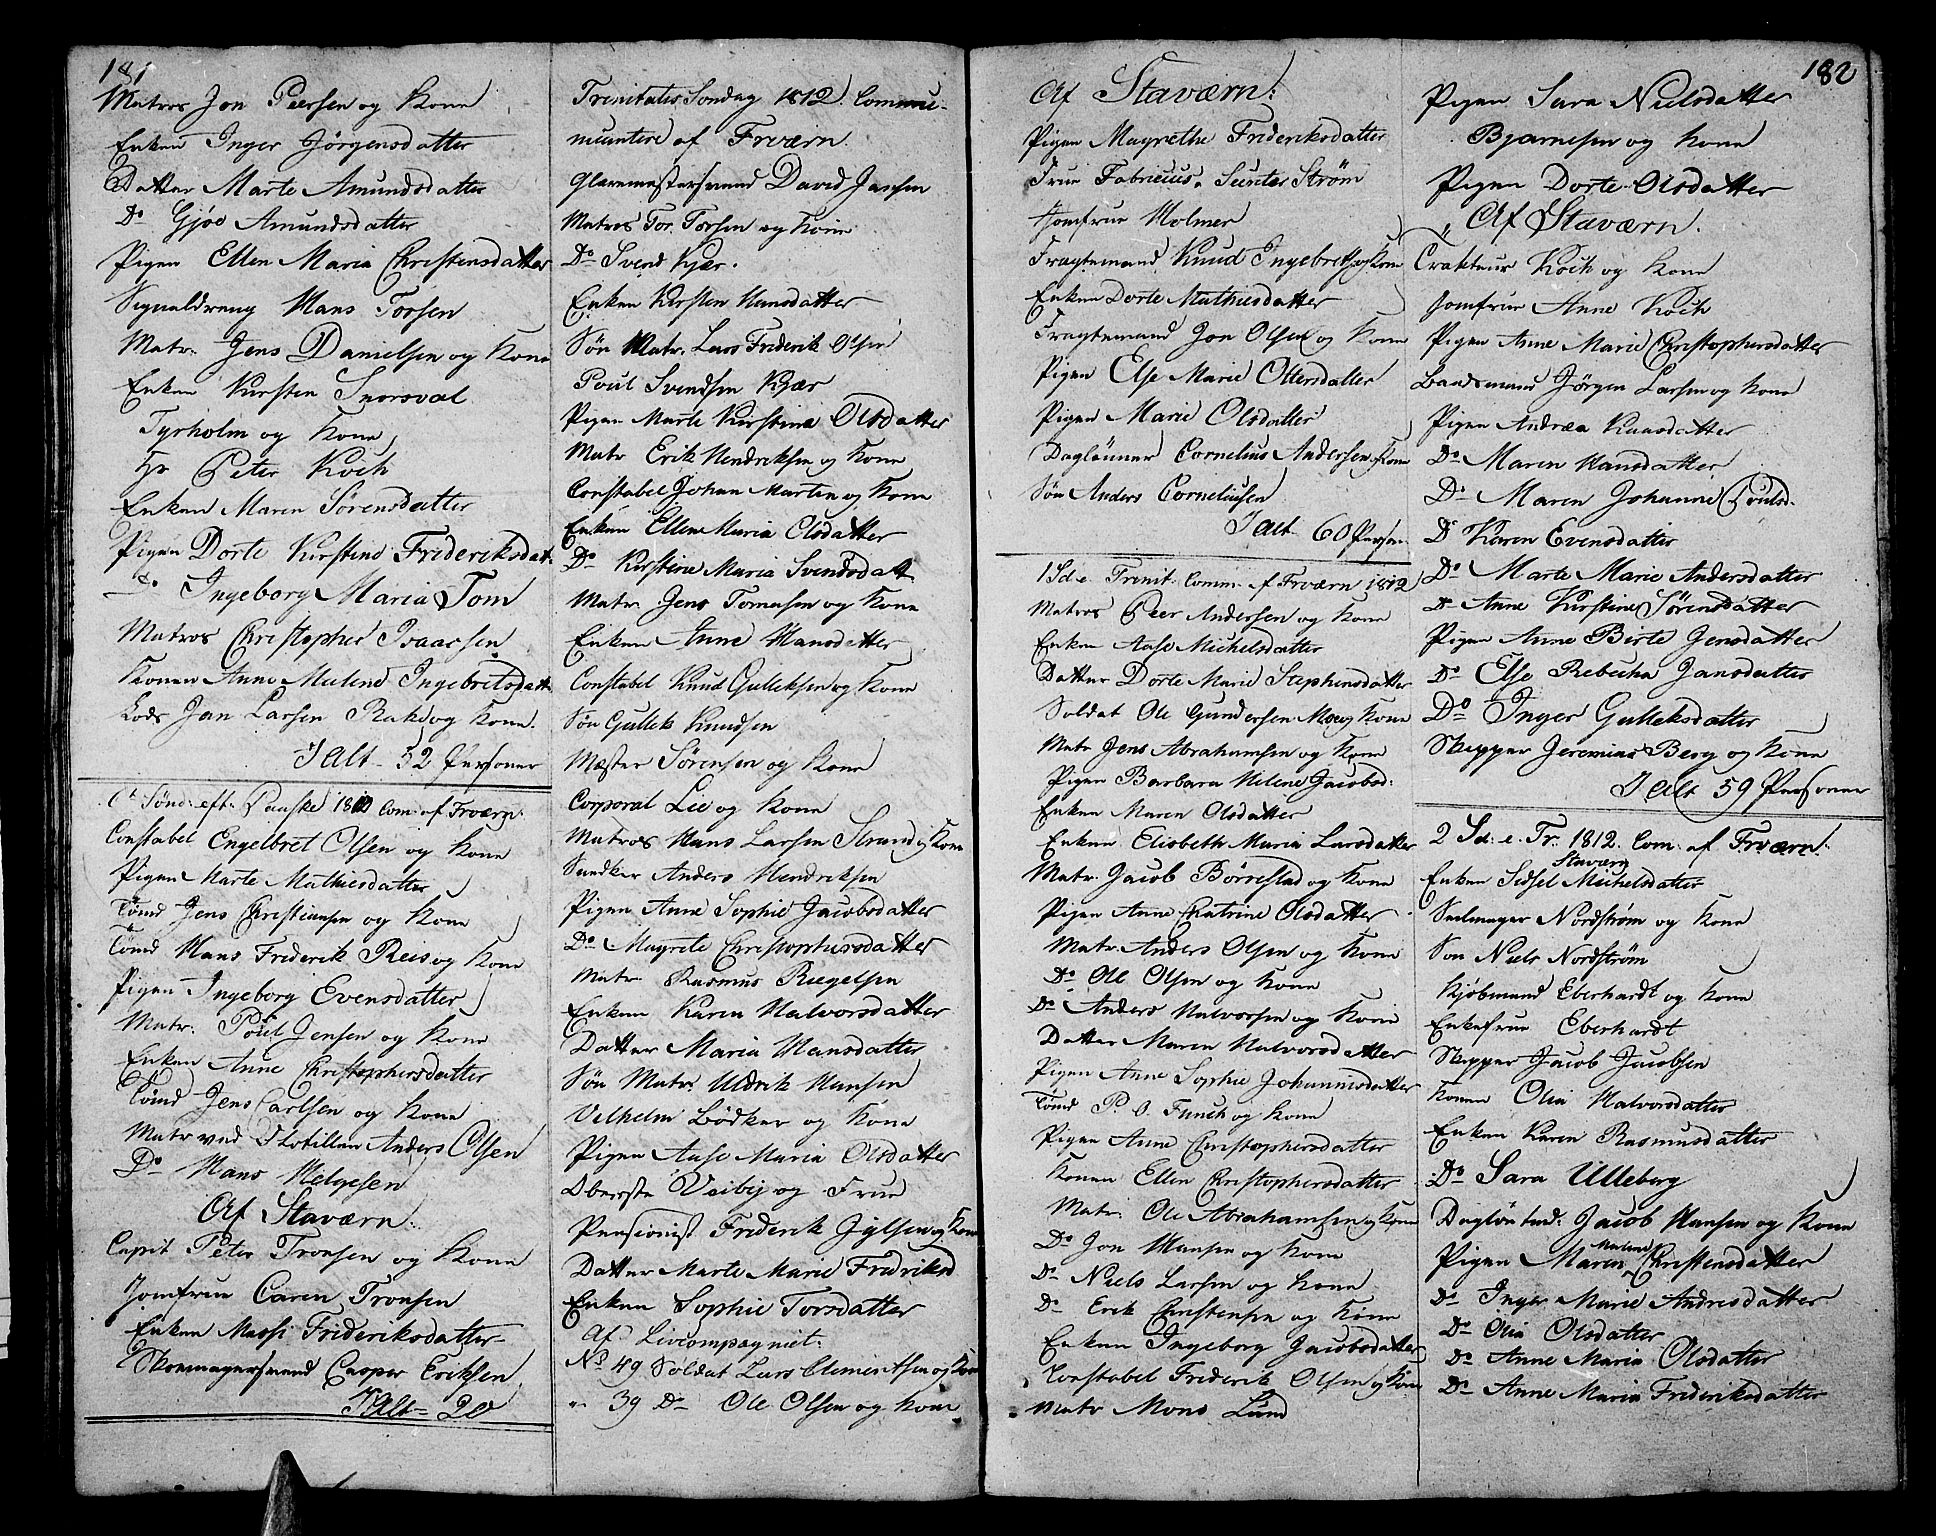 181
Matros Jon Peersen og Kone
Enken Inger Jörgensdatter
Datter Marte Amundsdatter
Do Gjöe Amundsdatter
Pigen Ellen Maria Christensdatter
Signaldreng Hans Torsen
Matr. Jens Danielsen og Kone
Enken Kirsten Snorsval
Tyrholm og Kone
Hr Peter Koch
Enken Maren Sörensdatter
Pigen Dorte Kirstine Frideriksdatt.
Do Ingeborg Maria Tom
Matros Christopher Isaacsen
Konen Anne Malene Ingebretsdatt
Lods Jan Larsen Rake og Kone.
I Alt 52 Personer
6te Sönd: eft: Paaske 1812 Com: af Frværn:
Constabel Engelbret Olsen og Kone
Pigen Marte Mathiesdatter
Tömd Jens Christiansen og Kone
Tömd Hans Friderik Reis og Kone
Pigen Ingeborg Evensdatter
Matr. Poul Jensen og Kone
Enken Anne Christophersdatter
Tömd Jens Carlsen og Kone
Matr ved Flotillen Anders Olsen
Do Hans Helgesen
Af Staværn:
Capit Peter Tronsen og Kone
Jomfrue Caren Tronsen
Enken Massi Frideriksdatter
Skomagersvend Casper Eriksen
I Alt 20
Trinitatis Söndag 1812. Commu-
nicantere af Frværn.
Glarmestersvend David Jansen
Matros Tor Torsen og Kone
Do Svend Kjær.
Enken Kirsten Hansdatter
Sön Matr. Lars Friderik Olsen
Poul Svendsen Kjær
Pigen Marte Kirstine Olsdatter
Matr Erik Hendriksen og Kone
Constabel Johan Martin og Kone
Enken Ellen Maria Olsdatter
Do Kirstine Maria Svendsdatt
Matr. Jens Tomasen og Kone
Enken Anne Hansdatter
Constabel Knud Gulliksen og Kone
Sön Gullek Knudsen
Mæster Sörensen og Kone
Corporal Lie og Kone
Matros Hans Larsen Strand og Kone
Anders Hendriksen
Pigen Anne Sophie Jacobsdatter
Do Magrete Christophersdatter
Matr Rasmus Riegelsen
Enken Karen Halvorsdatter
Datter Maria Hansdatter
Sön Matr. Uldrik Hansen
Vilhelm Bödker og Kone
Pigen Aase Maria Olsdatter
Oberste Veibÿ og Frue
Pensionist Friderik Jylsen og Kone
Datter Marte Marie Fredriksd
Enken Sophie Torsdatter
Af Livcompagniet:
No 49 Soldat Lars Clemmetsen og Kone
" 39 Do Ole Olsen og Kone
Af Staværn:
Pigen Magrethe Frideriksdatter
Frue Fabricius, Sunter Ström
Jomfrue Holmer
Fragtemand Knud Ingebretsen og Kone
Enken Dorte Mathiesdatter
Fragtemand Jon Olsen og Kone
Pigen Else Marie Ottersdatter
Pigen Marie Olsdatter
Daglönner Cornelius Andersen og Kone
Sön Anders Corneliusen
I alt 60 Person
1 Sd. e. Trinit. Comm. af Frværn 1812
Matros Peer Andersen og Kone
Enken Aase Michelsdatter
Datter Dorte Marie Stephensdatter
Soldat Ole Gundersen Moe og Kone
Matr Jens Abrahamsen og Kone
Pigen Barbara Helene Jacobsd:
Enken Maren Olsdatter
Enken Elisbeth Maria Larsdatter
Matr. Jacob Börrestad og Kone
Pigen Anne Catrine Olsdatter
Matr. Anders Olsen og Kone
Do Ole Olsen og Kone
Do Anders Halvorsen og Kone
Datter Maren Halvorsdatter
Pigen Anne Sophie Johannisdatter
Tömd P. O. Funch og Kone
Pigen Anne Christophersdatter
Konen Ellen Christophersdatter
Matr. Ole Abrahamsen og Kone
Do Jon Hansen og Kone
Do Niels Larsen og Kone
Do Erik Christensen og Kone
Enken Ingeborg Jacobsdatter
Constabel Friderik Olsen og Kone
Matr Mons Lund
182
Pigen Sara Nielsdatter
Bjarnesen og Kone
Pigen Dorte Olsdatter
Af Staværn.
Trakteur Koch og Kone
Jomfrue Anne Koch
Pigen Anne Marie Christophersdatter
Baadsmand Jörgen Larsen og Kone
Pigen Andrea Hansdatter
Do Maren Hansdatter
Do Maren Johanne Poulsd.
Do Karen Evensdatter
Do Marte Marie Andersdatter
Do Anne Kirstine Sörensdatter
Pigen Anne Birte Jensdatter
Do Else Rebecha Jansdatter
Do Inger Gulleksdatter
Skipper Jeremias Berg og Kone
I alt 59 Personer
2 Sd: e. Tr. 1812. Com: af Frværn:
Staværn
Enken Sidsel Michelsdatter
Seilmager Nordström og Kone
Son Niels Nordström
Kjöbmand Eberhardt og Kone
Enkefrue Eberhardt
Skipper Jacob Jacobsen
Konen Olia Halvorsdatter
Enken Karen Rasmusdatter
Do Sara Ulleberg
Jacob Hansen og Kone
Pigen Maren Malene Christensdatter
Do Inger Marie Andrisdatter
Do Olia Olsdatter
Do Anne Maria Olsdatter
Do Anne Maria Frideriksdatter